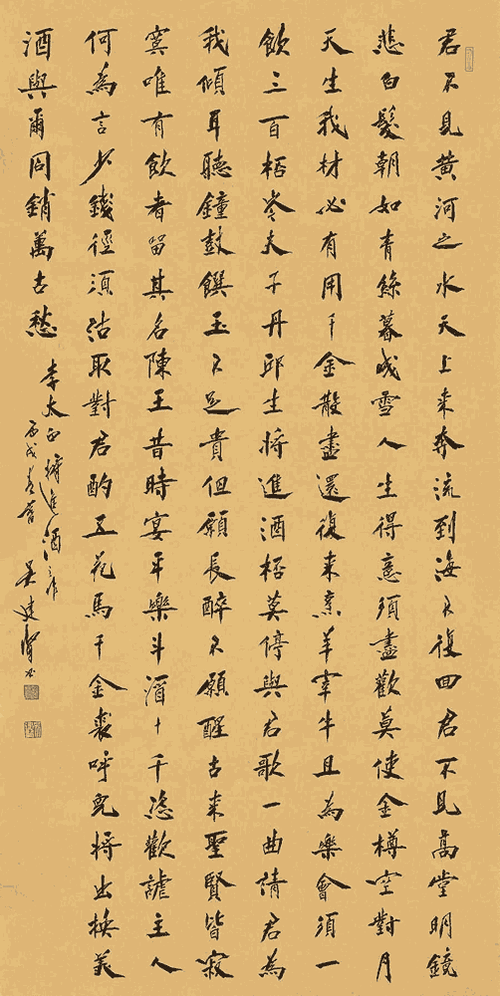 君不見黃河之水天上來奔流到海不復回君不見高堂明鏡
悲白髮朝如青絲暮成雪人生得意須盡歡莫使金樽空對月
天生我材必有用千金散盡還復來烹羊宰牛且為樂會須一
飲三百桮岑夫子丹邱生將進酒桮莫停與君歌一曲請君為
我傾耳聽鐘鼓饌玉不足貴但願長醉不願醒古來聖賢皆寂
寞唯有飲者留其名陳王昔時宴平樂斗酒十千恣歡謔主人
何為言少錢徑須沽取對君酌五花馬千金裘呼兒將出換美
酒與爾同銷萬古愁
李太白將進酒
丙戌春暮 吳建賢書